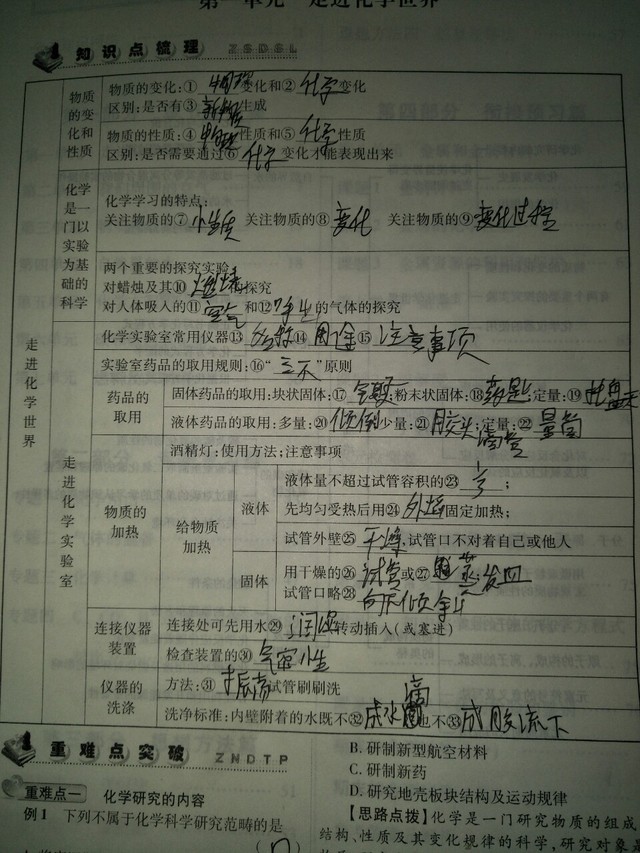 第一单元 走进化学世界
知识点梳理 ZSDSL
物质的变化和性质
物质的变化:①物理变化和②化学变化
区别:是否有③新物质生成
物质的性质:④物理性质和⑤化学性质
区别:是否需要通过⑥化学变化才能表现出来
化学是一门以实验为基础的科学
化学学习的特点:
关注物质的⑦性质 关注物质的⑧变化 关注物质的⑨变化过程
两个重要的探究实验
对蜡烛及其⑩燃烧探究
对人体吸入的⑪空气和⑫呼出的气体的探究
走进化学世界
走进化学实验室
化学实验室常用仪器⑬名称⑭用途⑮注意事项
实验室药品的取用规则:⑯“三不”原则
药品的取用
固体药品的取用:块状固体:⑰ 粉末状固体:⑱药匙;定量:⑲托盘天
液体药品的取用:多量:⑳倾倒少量:㉑胶头滴管;定量:㉒量筒
物质的加热
酒精灯:使用方法;注意事项
给物质加热
液体
液体量不超过试管容积的㉓ ;
先均匀受热后用㉔外焰固定加热;
试管外壁㉕干燥,试管口不对着自己或他人
固体
用干燥的㉖试管或㉗蒸发皿
试管口略㉘向下倾斜
连接仪器装置
连接处可先用水㉙润湿转动插入(或塞进)
检查装置的㉚气密性
仪器的洗涤
方法:㉛ 试管刷刷洗
洗净标准:内壁附着的水既不㉜成水滴也不㉝成股流下
重难点突破 ZNDTP
重难点一 化学研究的内容
例1 下列不属于化学科学研究范畴的是
B. 研制新型航空材料
C. 研制新药
D. 研究地壳板块结构及运动规律
【思路点拨】化学是一门研究物质的组成
结构、性质及其变化规律的科学,研究对象